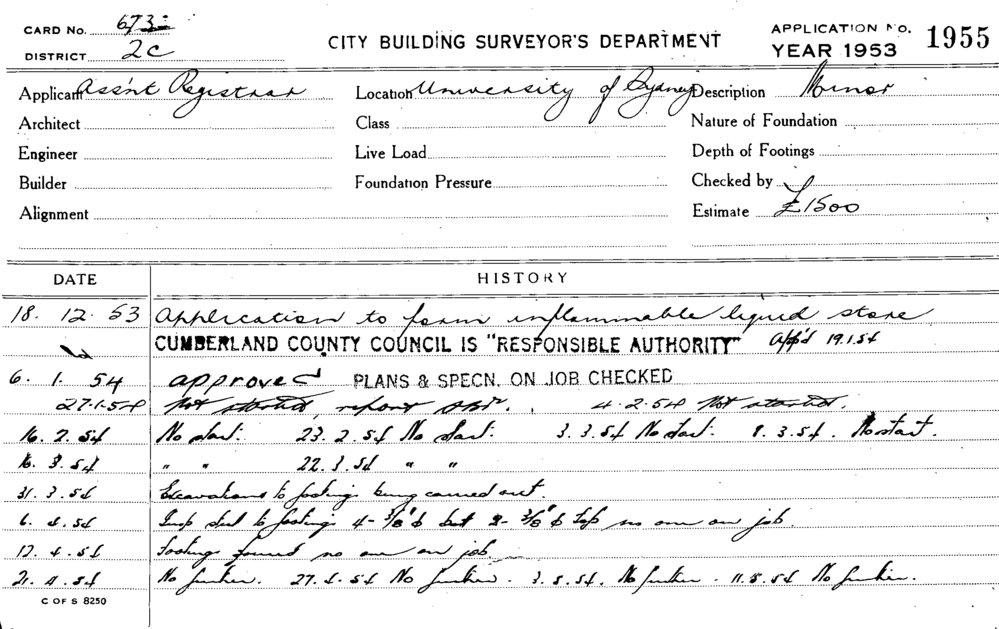 CARD No. 673
DISTRICT 2C
CITY BUILDING SURVEYOR'S DEPARTMENT
APPLICATION No. 1955
YEAR 1953
Applicant Ass'nt Registrar
Location University of Sydney
Description Minor
Architect
Class
Nature of Foundation
Engineer
Live Load
Depth of Footings
Builder
Foundation Pressure
Checked by
Alignment
Estimate £1500
DATE HISTORY
18. 12. 53 Application to form inflammable liquid store
CUMBERLAND COUNTY COUNCIL IS "RESPONSIBLE AUTHORITY" App'd 19.1.54
6. 1. 54 approved PLANS & SPECN. ON JOB CHECKED
27.1.54 Not started, report 4.2.54 Not started.
16. 2. 54 No start. 23. 2. 54 No start. 3. 3. 54 No start. 8. 3. 54. No start.
16. 3. 54 " " 22. 3. 54 " "
31. 3. 54 Excavations to footings being carried out.
6. 4. 54 Insp steel to footings 4-3/8"ϕ bot 2-3/8"ϕ top no one on job.
12. 4. 54 Footing poured no one on job.
21. 4. 54 No further. 27. 4. 54 No further. 3. 5. 54. No further. 11. 5. 54 No further.
C OF S 8250